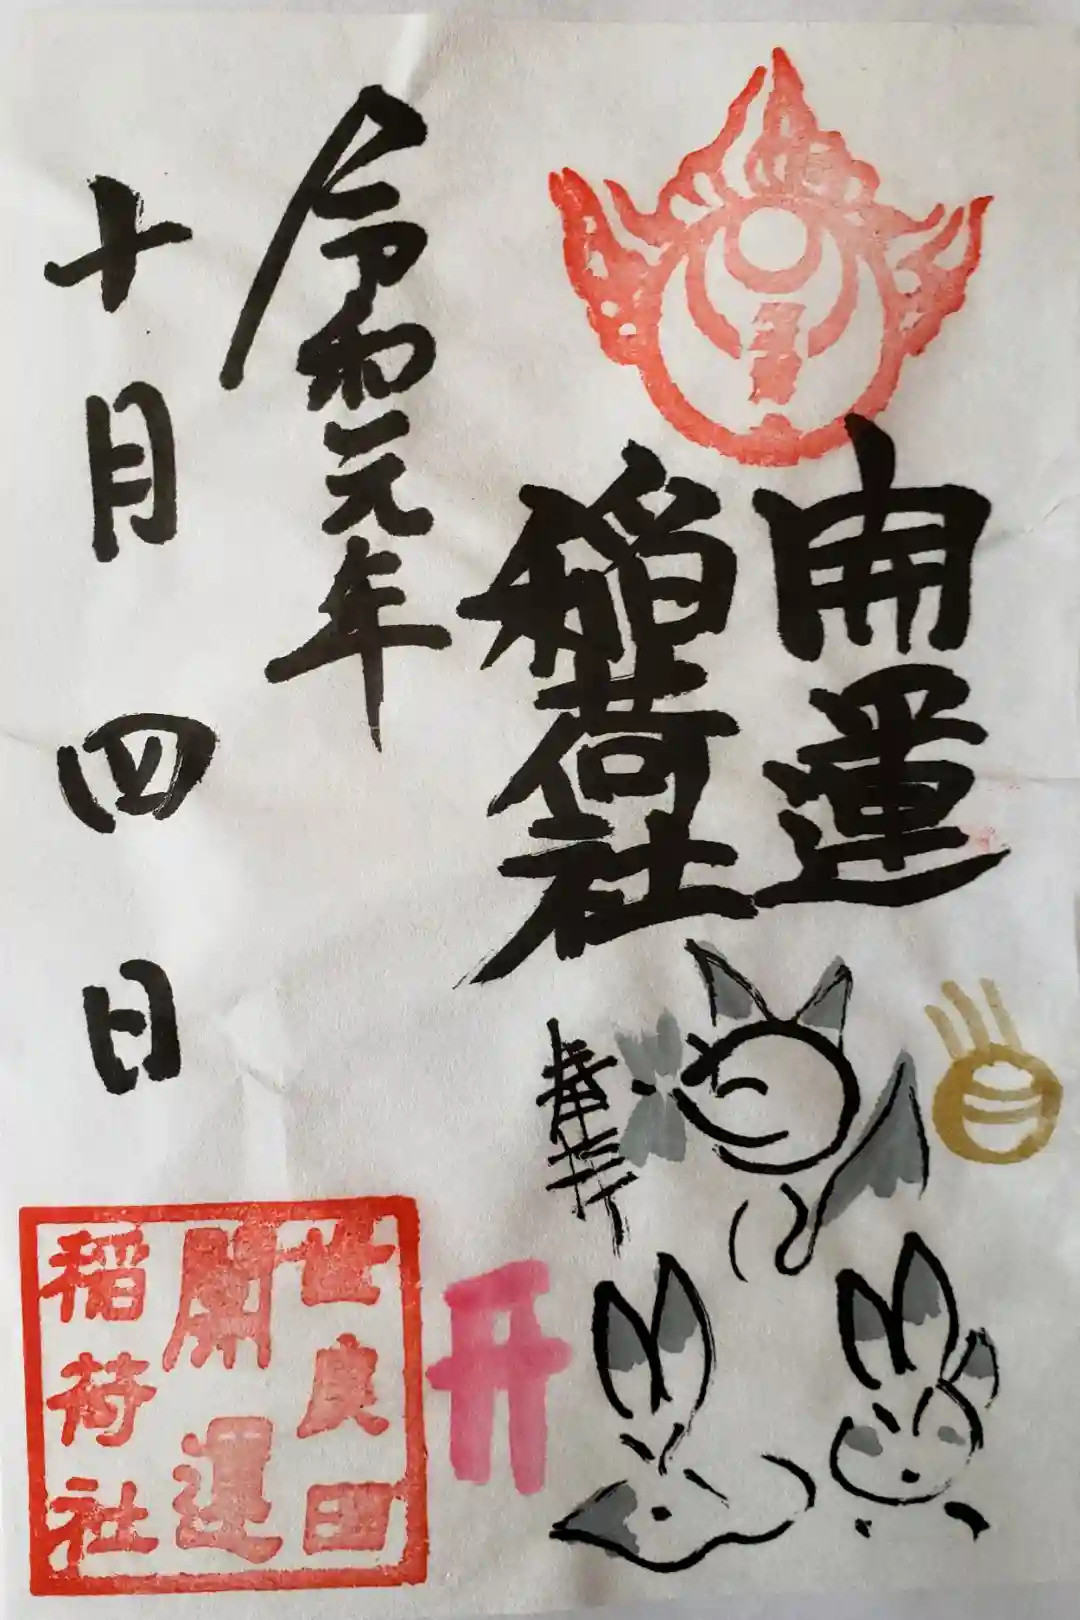 開運
稲荷社
令和元年
十月四日
世良田
開運
稲荷社